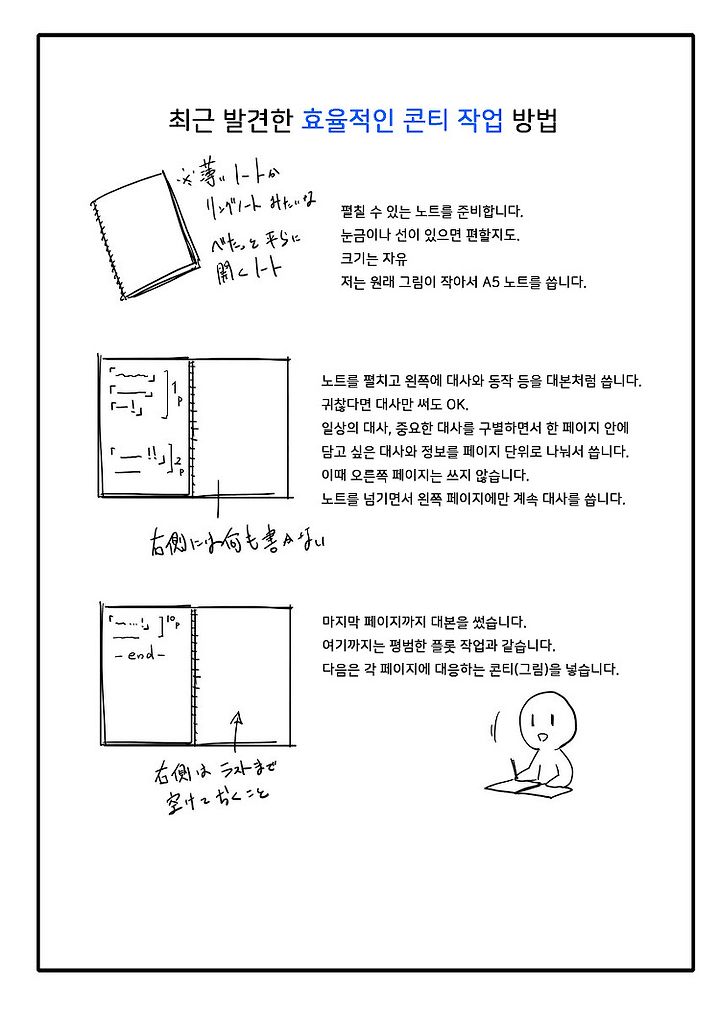 최근 발견한 효율적인 콘티 작업 방법
※薄いノートか
リングノートみたいな
べたっと平らに
開くノート
펼칠 수 있는 노트를 준비합니다.
눈금이나 선이 있으면 편할지도.
크기는 자유
저는 원래 그림이 작아서 A5 노트를 씁니다.
1p
2p
노트를 펼치고 왼쪽에 대사와 동작 등을 대본처럼 씁니다.
귀찮다면 대사만 써도 OK.
일상의 대사, 중요한 대사를 구별하면서 한 페이지 안에
담고 싶은 대사와 정보를 페이지 단위로 나눠서 씁니다.
이때 오른쪽 페이지는 쓰지 않습니다.
노트를 넘기면서 왼쪽 페이지에만 계속 대사를 씁니다.
右側には何も書かない
10p
-end-
마지막 페이지까지 대본을 썼습니다.
여기까지는 평범한 플롯 작업과 같습니다.
다음은 각 페이지에 대응하는 콘티(그림)을 넣습니다.
右側はラストまで
空けておくこと